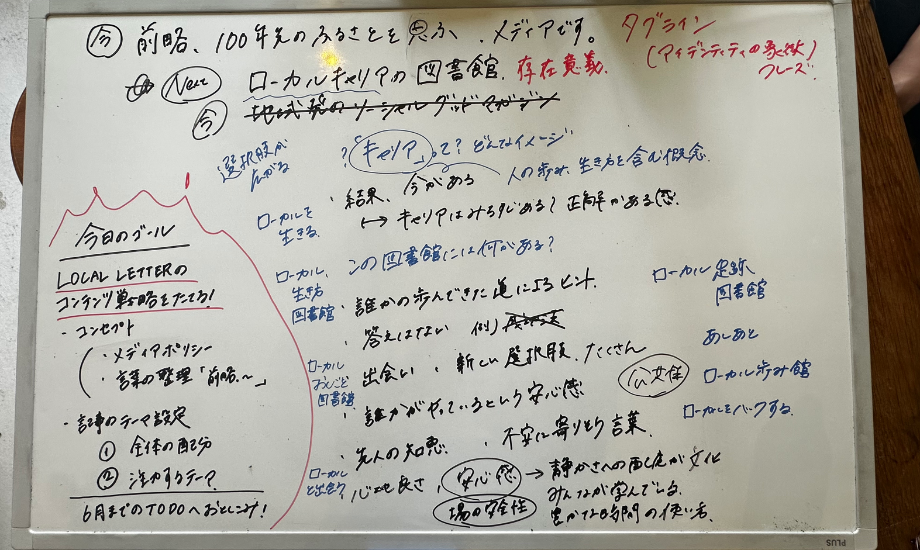 今 前略、100年先のふるさとを思ふ、メディアです。
タグライン
(アイデンティティの象徴)
フレーズ
Next ローカルキャリアの図書館. 存在意義.
今 地域発のソーシャルグッドマガジン
選択肢が
広がる
?「キャリア」って? どんなイメージ
人の歩み、生き方を含む概念.
・結果、今がある
↦ キャリアはみちすじある? 正解がある感
ローカルを
生きる.
この図書館には何がある?
ローカル、
生き方
図書館
・誰かの歩んできた道によるヒント.
・答えはない 例)
・出会い ・新しい選択肢、たくさん
ローカル
おしごと
図書館
・誰かがやっているという安心感
公共性
・先人の知恵 ・不安に寄りそう言葉.
ローカル
と出会う
・心地良さ、安心感 → 静かさへの配慮が文化
場の安全性
みんなが学んでいる.
豊かな時間の使い方.
ローカル 足跡
図書館
あしあと
ローカル歩み館
ローカルをバークする.
今日のゴール
LOCAL LETTERの
コンテンツ戦略をたてる!
- コンセプト
・メディアポリシー
・言葉の整理「前略、〜」
- 記事のテーマ設定
① 全体の配分
② 注力するテーマ
6月までのTODOへおとしこみ!
PLUS